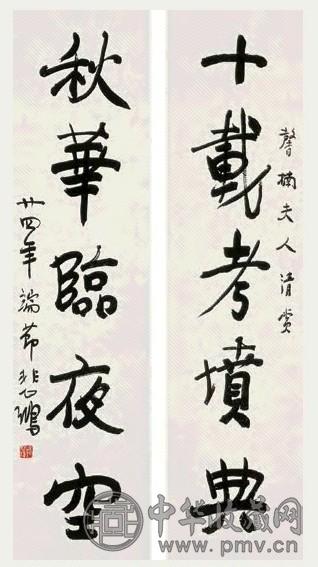 馨楠夫人清赏
十載考墳典
秋華臨夜空
廿四年端節悲鴻
中华收藏网
www.pmv.cn